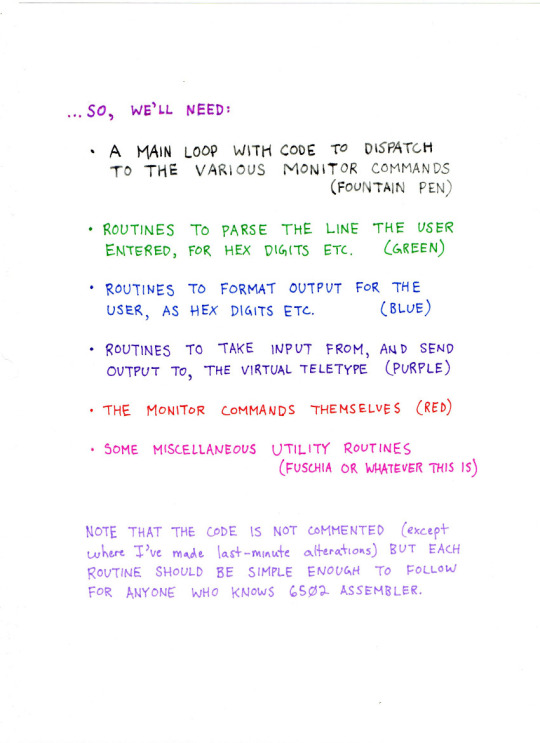 ...SO, WE'LL NEED:
• A MAIN LOOP WITH CODE TO DISPATCH
TO THE VARIOUS MONITOR COMMANDS
(FOUNTAIN PEN)
• ROUTINES TO PARSE THE LINE THE USER
ENTERED, FOR HEX DIGITS ETC. (GREEN)
• ROUTINES TO FORMAT OUTPUT FOR THE
USER, AS HEX DIGITS ETC. (BLUE)
• ROUTINES TO TAKE INPUT FROM, AND SEND
OUTPUT TO, THE VIRTUAL TELETYPE (PURPLE)
• THE MONITOR COMMANDS THEMSELVES (RED)
• SOME MISCELLANEOUS UTILITY ROUTINES
(FUSCHIA OR WHATEVER THIS IS)
NOTE THAT THE CODE IS NOT COMMENTED (except
where I've made last-minute alterations) BUT EACH
ROUTINE SHOULD BE SIMPLE ENOUGH TO FOLLOW
FOR ANYONE WHO KNOWS 65Ø2 ASSEMBLER.